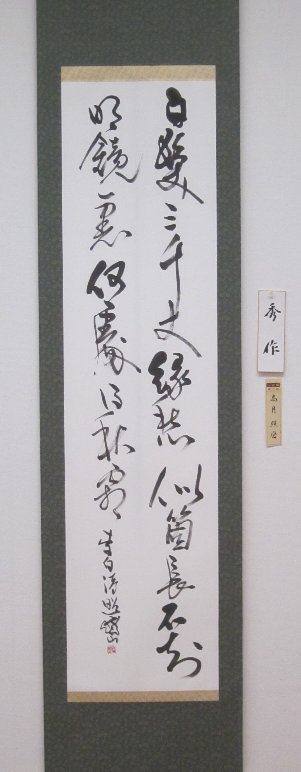 白髪三千丈縁愁似箇長不知
明鏡裏何處得秋霜
李白詩
秀作
高月